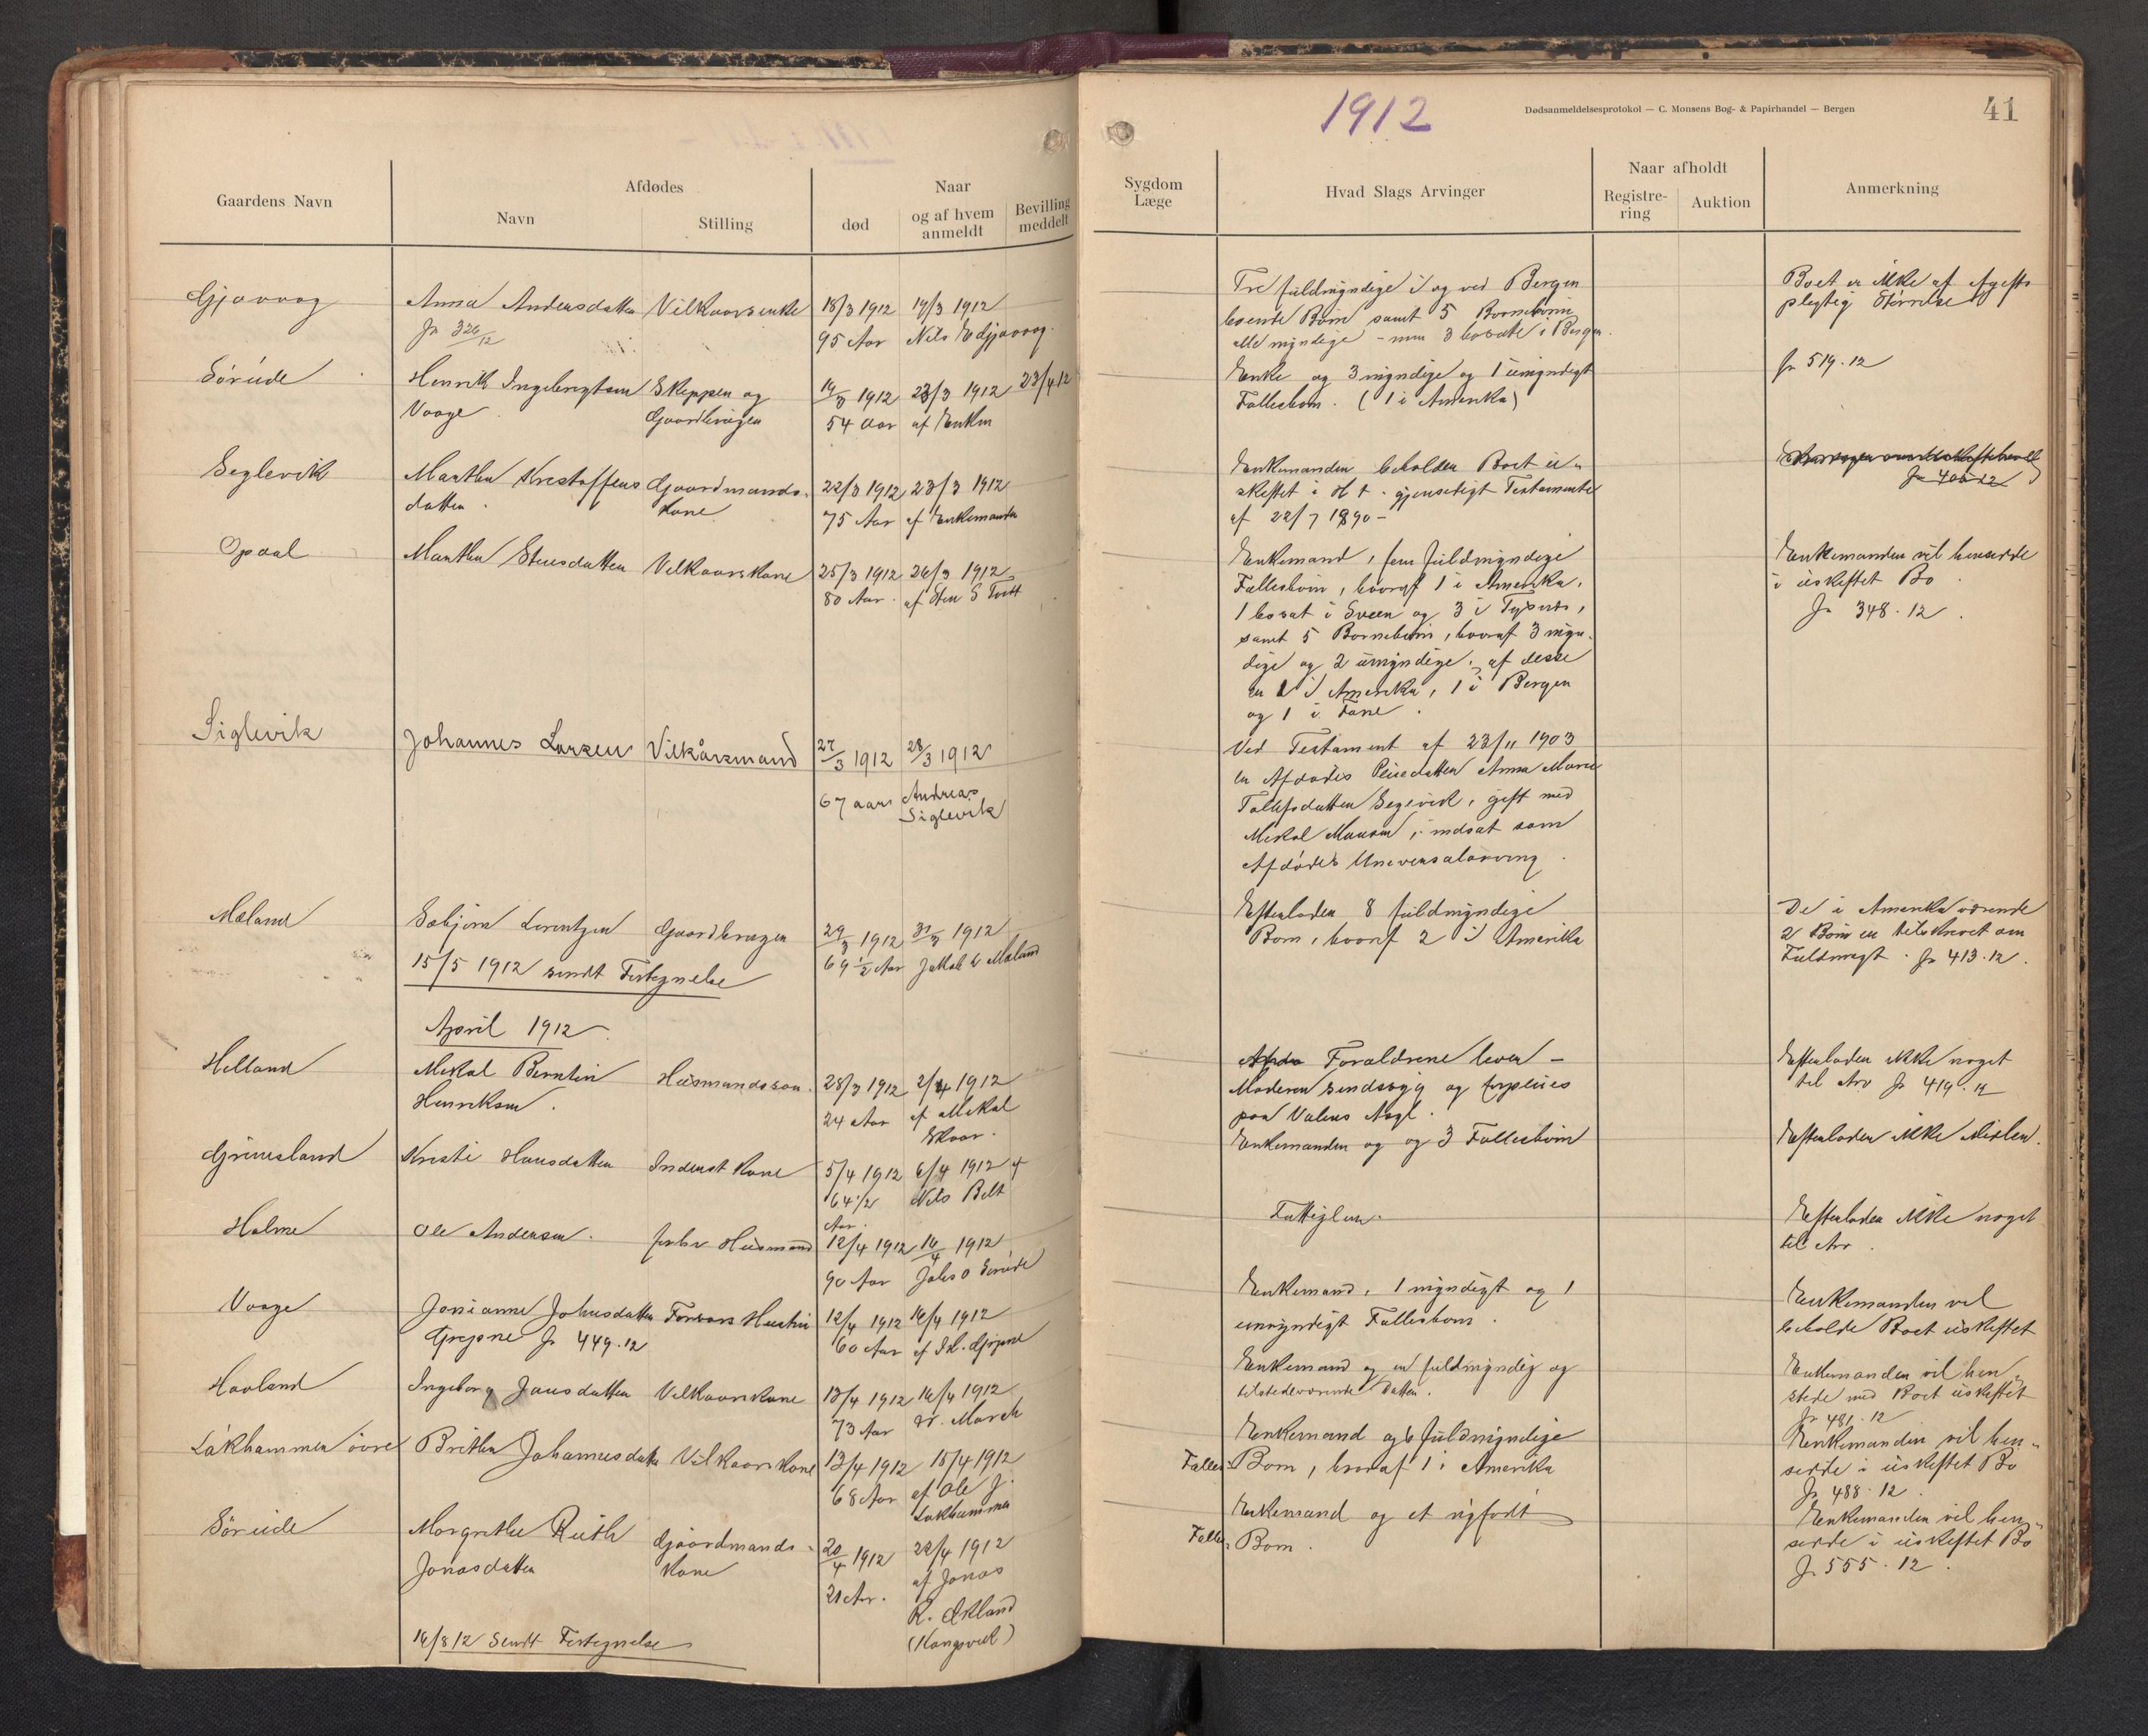 1912
Dødsanmeldelsesprotokol — C. Monsens Bog- & Papirhandel — Bergen
41
Gaardens Navn
Afdødes
Navn
Stilling
Naar
død
og af hvem anmeldt
Bevilling meddelt
Sygdom Læge
Hvad Slags Arvinger
Naar afholdt
Registre-ring
Auktion
Anmerkning
Gjøvaag
Anna Andersdatter Vilkaarsenke 18/3 1912 19/3 1912
Jr 326/12
95 Aar Nils E Gjøvaag
Tre fuldmyndige i og ved Bergen
boende Børn samt 5 Børnebørn
alle myndige - 3 bosatte i Bergen
Boet er ikke af Afgifts
plegtig Størrelse
Sørúde
Henrik Ingebregtsen Skipper og 14/3 1912 23/3 1912 23/4 12
Vaage Gaardbruger 54 Aar af Enken
Enke og 3 myndige og 1 úmyndigt
Fællesbarn. (1 i Amerika)
Jr 519.12
Seglevik
Marthe Kristoffers Gaardmands- 22/3 1912 23/3 1912
datter. Kone 75 Aar af Enkemanden
Enkemanden beholder Boet ú-
skiftet i H t. gjensidigt Testamente
af 22/7 1890 -
Jr 406 12
Opdal
Marthe Steensdatter Vilkaarskone 25/3 1912 26/3 1912
80 Aar. af Sten S Tvett
Enkemand, fem fúldmyndige
Fællesbørn, hvoraf 1 i Amerika,
1 bosat i Sveen og 3 i Tysnes,
samt 5 Børnebørn, hvoraf 3 myn-
dige og 2 úmyndige, af desse
er 1 i Amerika, 1 i Bergen
og 1 i Fane.
Enkemanden vil hensidde
i úskiftet Bo.
Jr 348.12.
Siglevik
Johannes Larsen Vilkårsmand 27/3 1912 28/3 1912
67 aar Andreas
Siglevik
Ved Testament af 23/11 1903
er Afdødes Pleiedatter Anna Marie
Tollefsdatter Seglevik, gift med
Mikal Monsen, indsat som
Afdødes Universalarving.
Mæland
Sebjørn Lorentzen Gaardbruger 29/3 1912 31/3 1912
69 1/2 Aar Jakob L Mæland
15/5 1912 sendt Fortegnelse
Efterlader 8 fúldmyndige
Børn, hvoraf 2 i Amerika
De i Amerika værende
2 Børn er tilskrevet om
Fúldmagt. Jr 413.12.
April 1912
Helland
Mikal Berntin Húsmandssøn. 28/3 1912 2/4 1912
Henriksen. 24 Aar af Mikal
Skaar.
Forældrene lever -
Moderen sindssyg og forpleies
paa Valens Asyl.
Efterlader ikke noget
til Arv Jr 419.12
Grimesland
Kristi Hansdatter Inderst Kone 5/4 1912 6/4 1912 af
64 1/2 Nils Belt
Aar.
Enkemanden og og 3 Fællesbørn
Efterlader ikke Midler.
Holme
Ole Andersen. forhv Húsmand 12/4 1912 14/4 1912
90 Aar Johs O Sørúde
Fattiglem.
Efterlader ikke noget
til Arv.
Vaage
Josianne Johnsdatter Forvars Hustrú 12/4 1912 14/4 1912
Gripne Jr 449.12 60 Aar af Gripne
Enkemand, 1 myndigt og 1
úmyndigt Fællesbarn.
Enkemanden vil
beholde Boet úskiftet
Hovland
Ingeborg Jansdatter Vilkaarskone 13/4 1912 14/4 1912
73 Aar
Enkemand og en fúldmyndig og
tilstedeværende Datter.
Enkemanden vil hen-
sidde med Boet úskiftet
Jr 481.12
Lökhammer övre
Brithe Johannesdatter Vilkaarskone 13/4 1912 15/4 1912
68 Aar af Ole J.
Løkhammer
Enkemand og 6 fúldmyndige
Fælles- Børn, hvoraf 1 i Amerika
Enkemanden vil hen-
sidde i úskiftet Bo
Jr 488.12.
Sörúde
Margrethe Rúth Gaardmands- 20/4 1912 22/4 1912
Jonasdatter Kone 21 Aar. af Jonas
R. Økland
(Kongsvik)
Enkemand og et nyfødt
Fælles- Barn.
Enkemanden vil hen-
sidde i úskiftet Bo
Jr 555.12.
14/8 12 sendt Fortegnelse